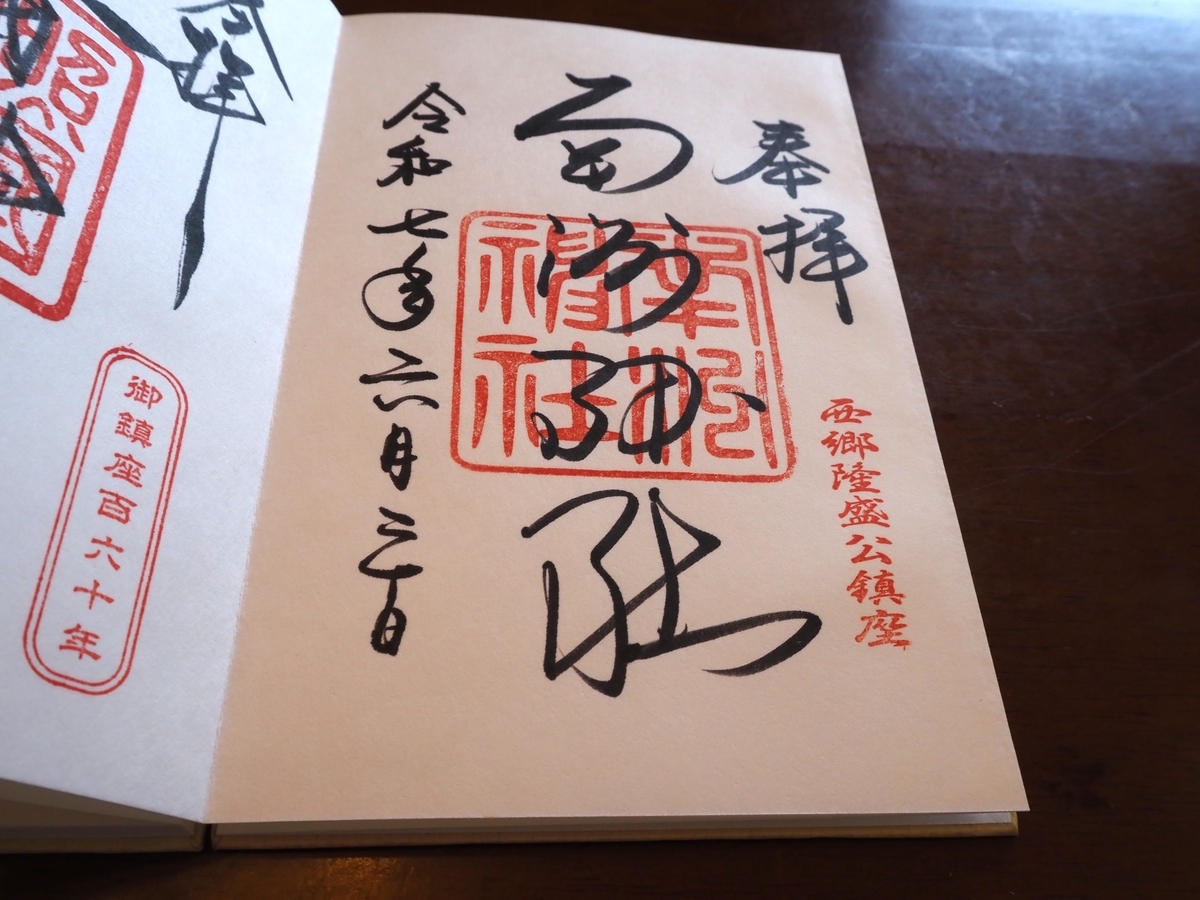 奉拝
西郷隆盛公鎮座
南洲神社
南洲神社
令和七年六月二十日
御鎮座百六十年